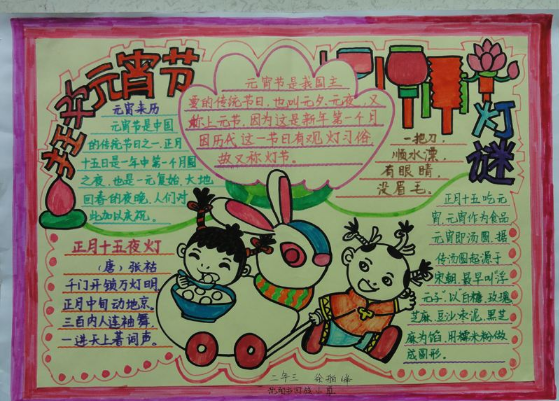 狂欢元宵节
元宵来历
元宵节是中国
的传统节日之一,正月
十五日是一年中第一个月圆
之夜,也是一元复始,大地
回春的夜晚,人们对
此加以庆祝。
元宵节是我国主
要的传统节日,也叫元夕、元夜,又
称上元节,因为这是新年第一个月
因历代这一节日有观灯习俗,
故又称灯节。
灯谜
一把刀,
顺水漂,
有眼睛,
没眉毛。
正月十五夜灯
(唐)张祜
千门开锁万灯明,
正月中旬动地京。
三百内人连袖舞,
一进天上著词声。
正月十五吃元
宵,元宵作为食品
元宵即汤圆,据
传汤圆起源于
宋朝,最早叫“浮
元子”,以白糖、玫瑰
芝麻、豆沙、
麻为馅,用糯米粉做
成圆形。
二年三